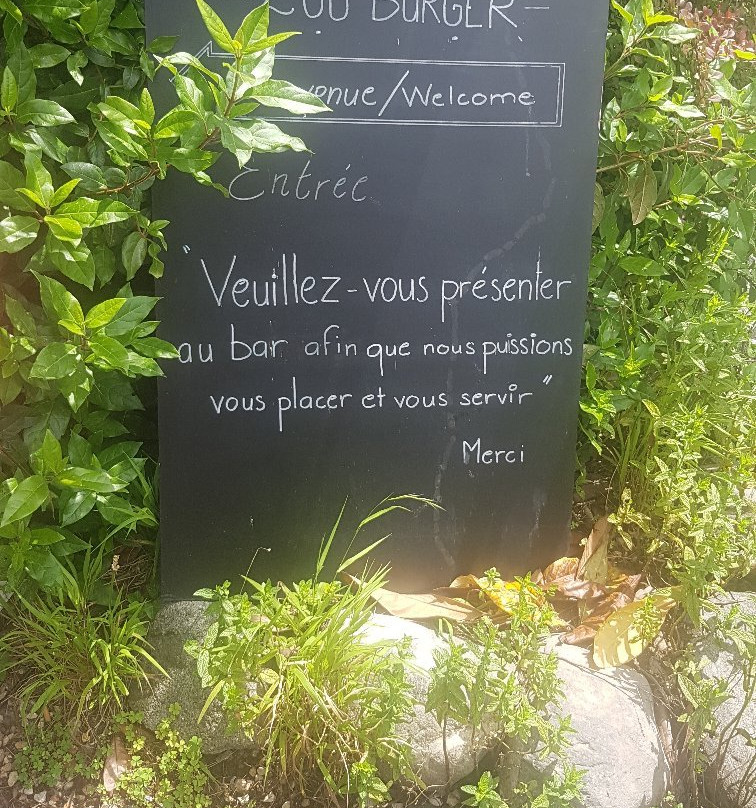 BURGER –
/Welcome
Entrée
"Veuillez-vous présenter
au bar afin que nous puissions
vous placer et vous servir"
Merci